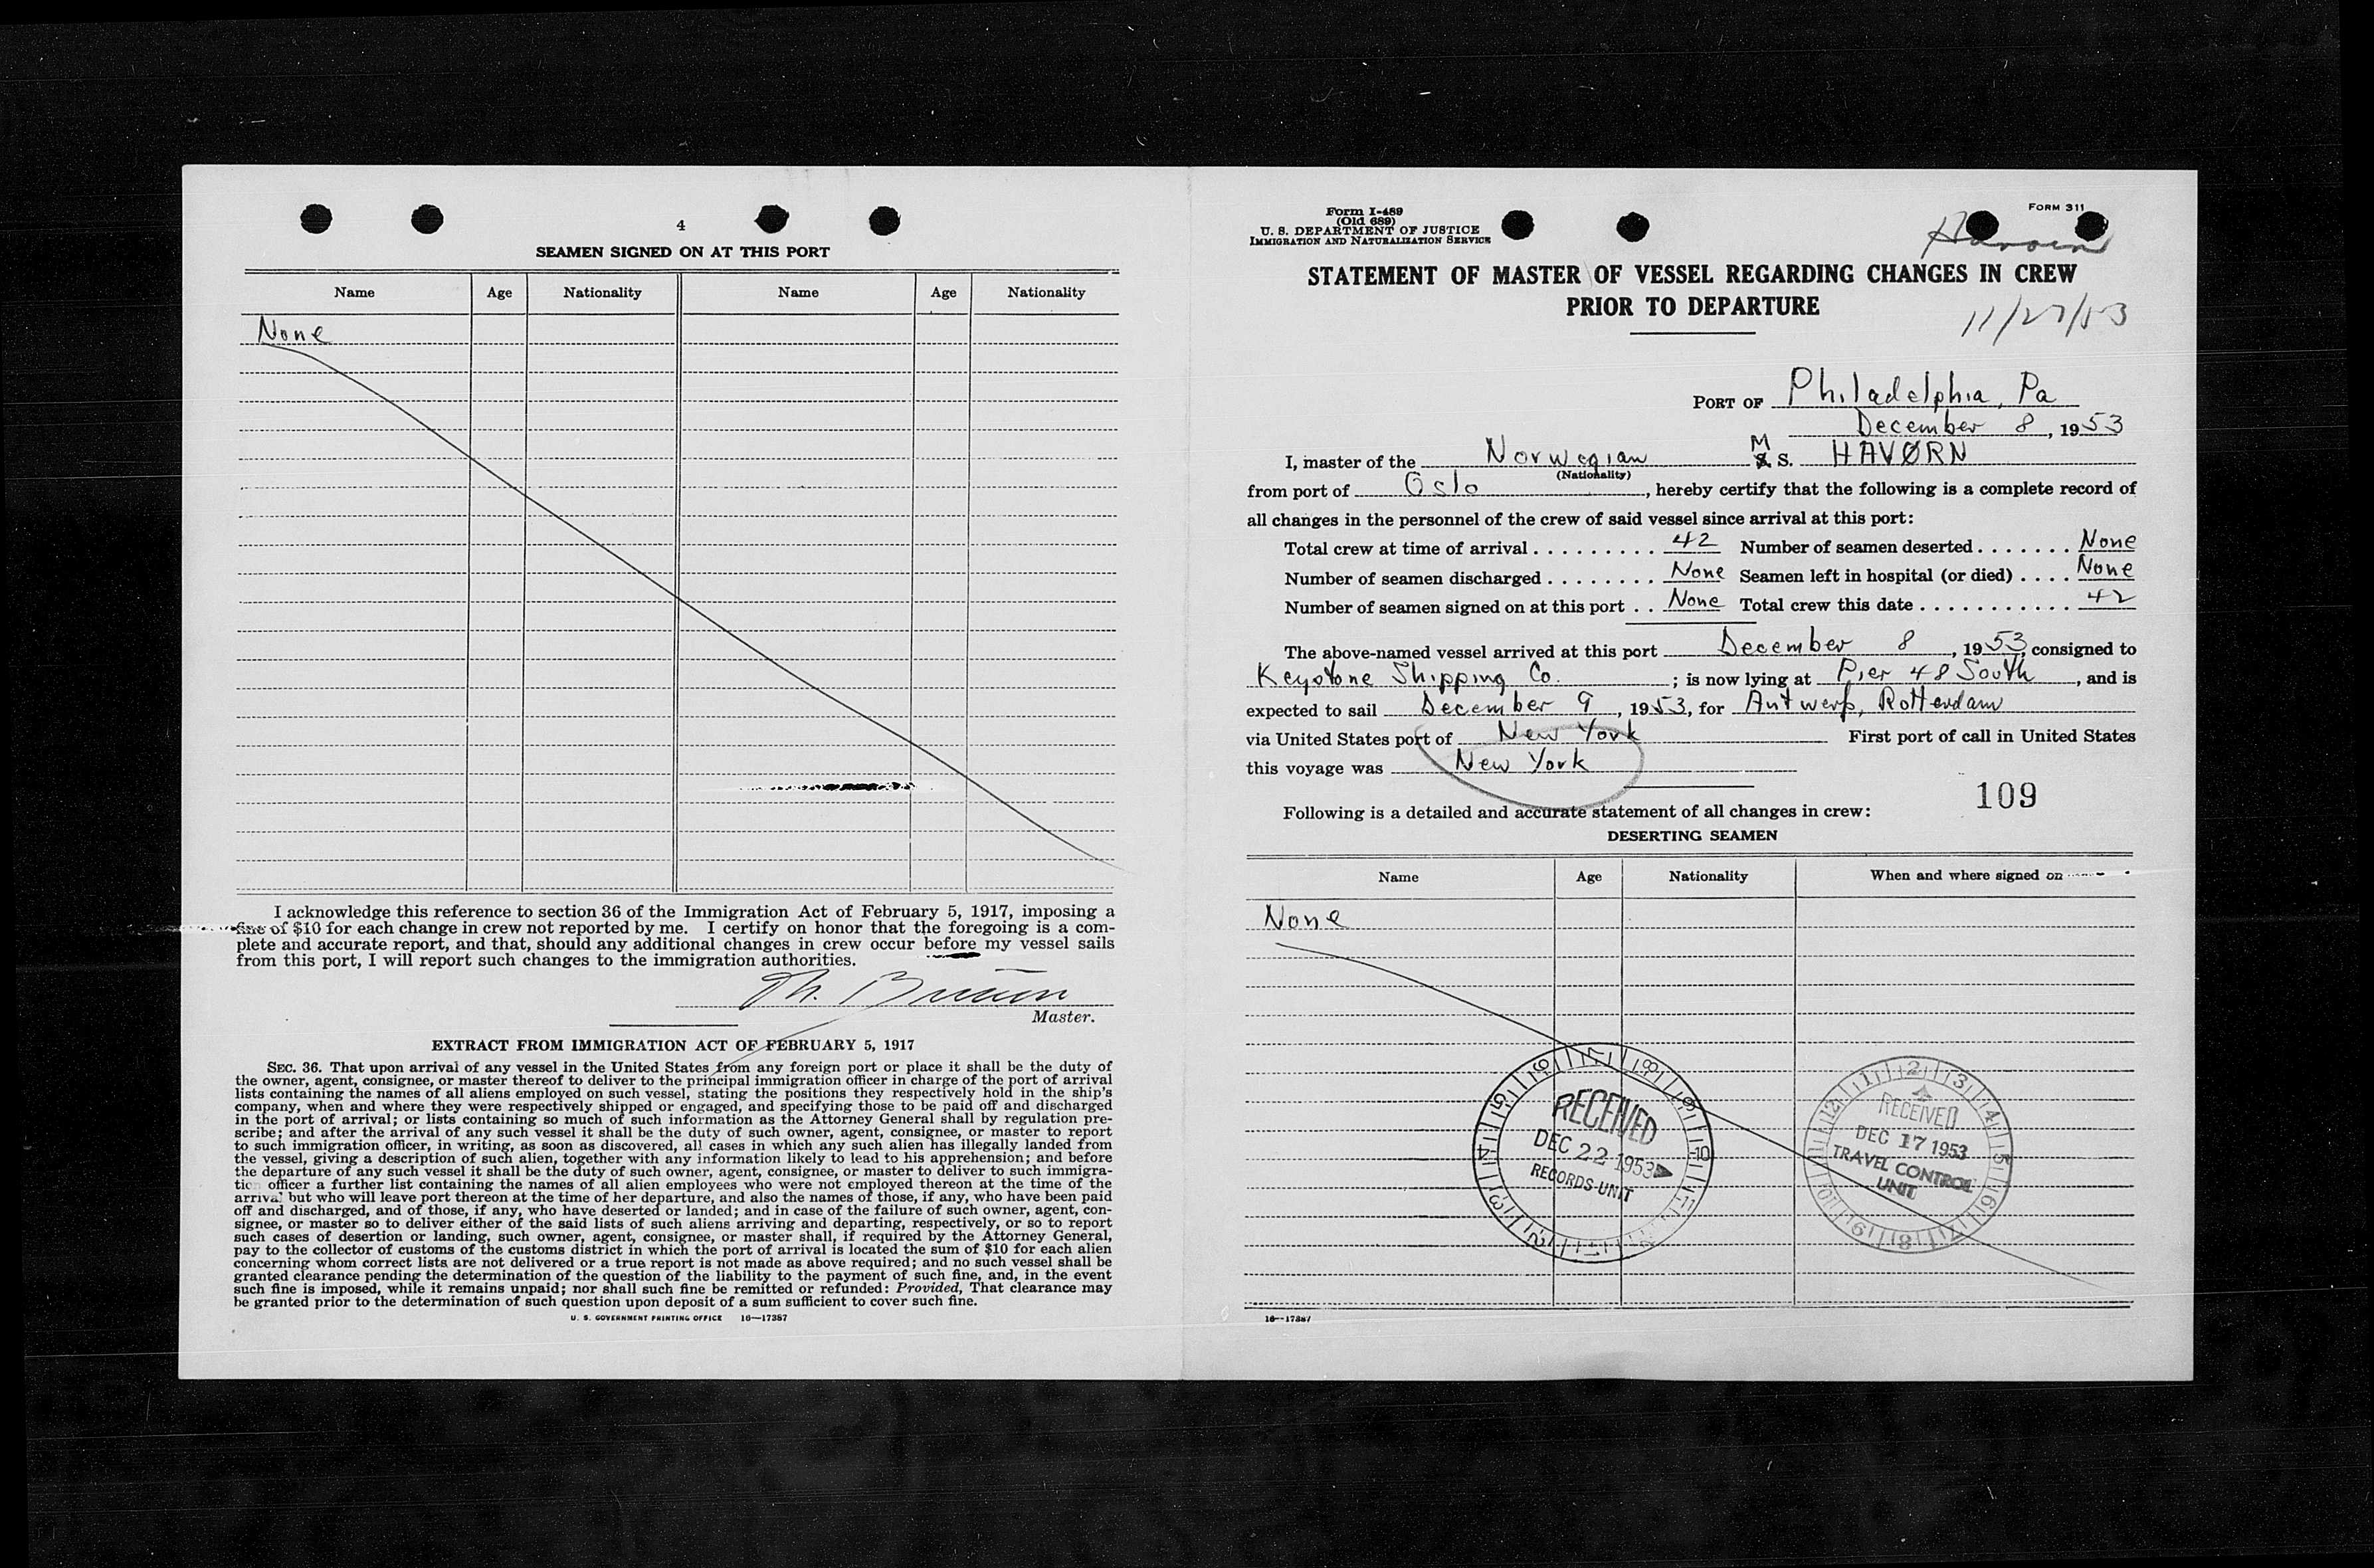 4
SEAMEN SIGNED ON AT THIS PORT
Name Age Nationality Name Age Nationality
None
I acknowledge this reference to section 36 of the Immigration Act of February 5, 1917, imposing a
fine of $10 for each change in crew not reported by me. I certify on honor that the foregoing is a com-
plete and accurate report, and that, should any additional changes in crew occur before my vessel sails
from this port, I will report such changes to the immigration authorities.
Th.
Master.
EXTRACT FROM IMMIGRATION ACT OF FEBRUARY 5, 1917
SEC. 36. That upon arrival of any vessel in the United States from any foreign port or place it shall be the duty of
the owner, agent, consignee, or master thereof to deliver to the principal immigration officer in charge of the port of arrival
lists containing the names of all aliens employed on such vessel, stating the positions they respectively hold in the ship's
company, when and where they were respectively shipped or engaged, and specifying those to be paid off and discharged
in the port of arrival; or lists containing so much of such information as the Attorney General shall by regulation pre-
scribe; and after the arrival of any such vessel it shall be the duty of such owner, agent, consignee, or master to report
to such immigration officer, in writing, as soon as discovered, all cases in which any such alien has illegally landed from
the vessel, giving a description of such alien, together with any information likely to lead to his apprehension; and before
the departure of any such vessel it shall be the duty of such owner, agent, consignee, or master to deliver to such immigra-
tion officer a further list containing the names of all alien employees who were not employed thereon at the time of the
arrival but who will leave port thereon at the time of her departure, and also the names of those, if any, who have been paid
off and discharged, and of those, if any, who have deserted or landed; and in case of the failure of such owner, agent, con-
signee, or master so to deliver either of the said lists of such aliens arriving and departing, respectively, or so to report
such cases of desertion or landing, such owner, agent, consignee, or master shall, if required by the Attorney General,
pay to the collector of customs of the customs district in which the port of arrival is located the sum of $10 for each alien
concerning whom correct lists are not delivered or a true report is not made as above required; and no such vessel shall be
granted clearance pending the determination of the question of the liability to the payment of such fine, and, in the event
such fine is imposed, while it remains unpaid; nor shall such fine be remitted or refunded: Provided, That clearance may
be granted prior to the determination of such question upon deposit of a sum sufficient to cover such fine.
U. S. GOVERNMENT PRINTING OFFICE 16—17387
Form I-489
(Old 689)
U. S. DEPARTMENT OF JUSTICE
IMMIGRATION AND NATURALIZATION SERVICE
FORM 311
STATEMENT OF MASTER OF VESSEL REGARDING CHANGES IN CREW
PRIOR TO DEPARTURE
11/27/53
PORT OF Philadelphia, Pa
December 8, 1953
I, master of the Norwegian M S. HAVØRN
(Nationality)
from port of Oslo, hereby certify that the following is a complete record of
all changes in the personnel of the crew of said vessel since arrival at this port:
Total crew at time of arrival . . . . . . . . . 42 Number of seamen deserted . . . . . . . None
Number of seamen discharged . . . . . . . . None Seamen left in hospital (or died) . . . . None
Number of seamen signed on at this port . . None Total crew this date . . . . . . . . . . . . 42
The above-named vessel arrived at this port December 8, 1953, consigned to
Keystone Shipping Co. ; is now lying at Pier 48 South, and is
expected to sail December 9, 1953, for Antwerp, Rotterdam
via United States port of New York First port of call in United States
this voyage was New York
109
Following is a detailed and accurate statement of all changes in crew:
DESERTING SEAMEN
Name Age Nationality When and where signed on
None
RECEIVED
DEC 22 1953
RECORDS UNIT
RECEIVED
DEC 17 1953
TRAVEL CONTROL
UNIT
16—17387